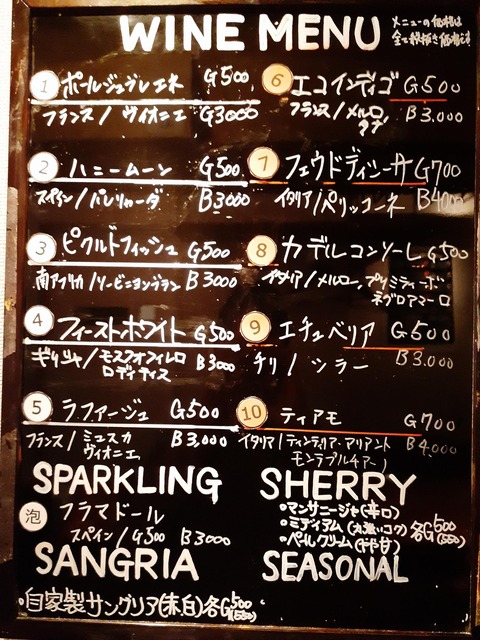 WINE MENU
メニューの価格は
全て税抜き価格です
① ポールジュヴレエネ G500
フランス / ヴィオニエ G3000
② ハニームーン G500
スペイン / パレリャーダ B3000
③ ピクルドフィッシュ G500
南アフリカ / ソービニヨンブラン B3000
④ フィーストホワイト G500
ギリシャ / モスフォフィレロ B3000
ロディティス
⑤ ラファージュ G500
フランス / ミュスカ B3,000
ヴィオニエ
⑥ エコインディゴ G500
フランス / メルロ B3.000
タナ
⑦ フェウドディシーサ G700
イタリア / ペリッコーネ B4000
⑧ カデルコンソーレ G500
イタリア / メルロー、プリミティーボ
ネグロアマーロ
⑨ エチュベリア G500
チリ / シラー B3.000
⑩ ティアモ G700
イタリア / ティンティリア・アリアント B4,000
モンテプルチアーノ
SPARKLING
泡 フラマドール
スペイン / G500 B3000
SANGRIA
・自家製サングリア(赤,白)各G500
(550)
SHERRY
・マンサニージャ(辛口)
・ミディアム(丸強いコク) 各G500
・ペールクリーム(やや甘) (550)
SEASONAL